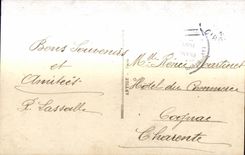 Bons Souvenirs
et
Amitiés
P. Lassalle
Mlle Renée Martinet
Hotel du Commerce
Cognac
Charente